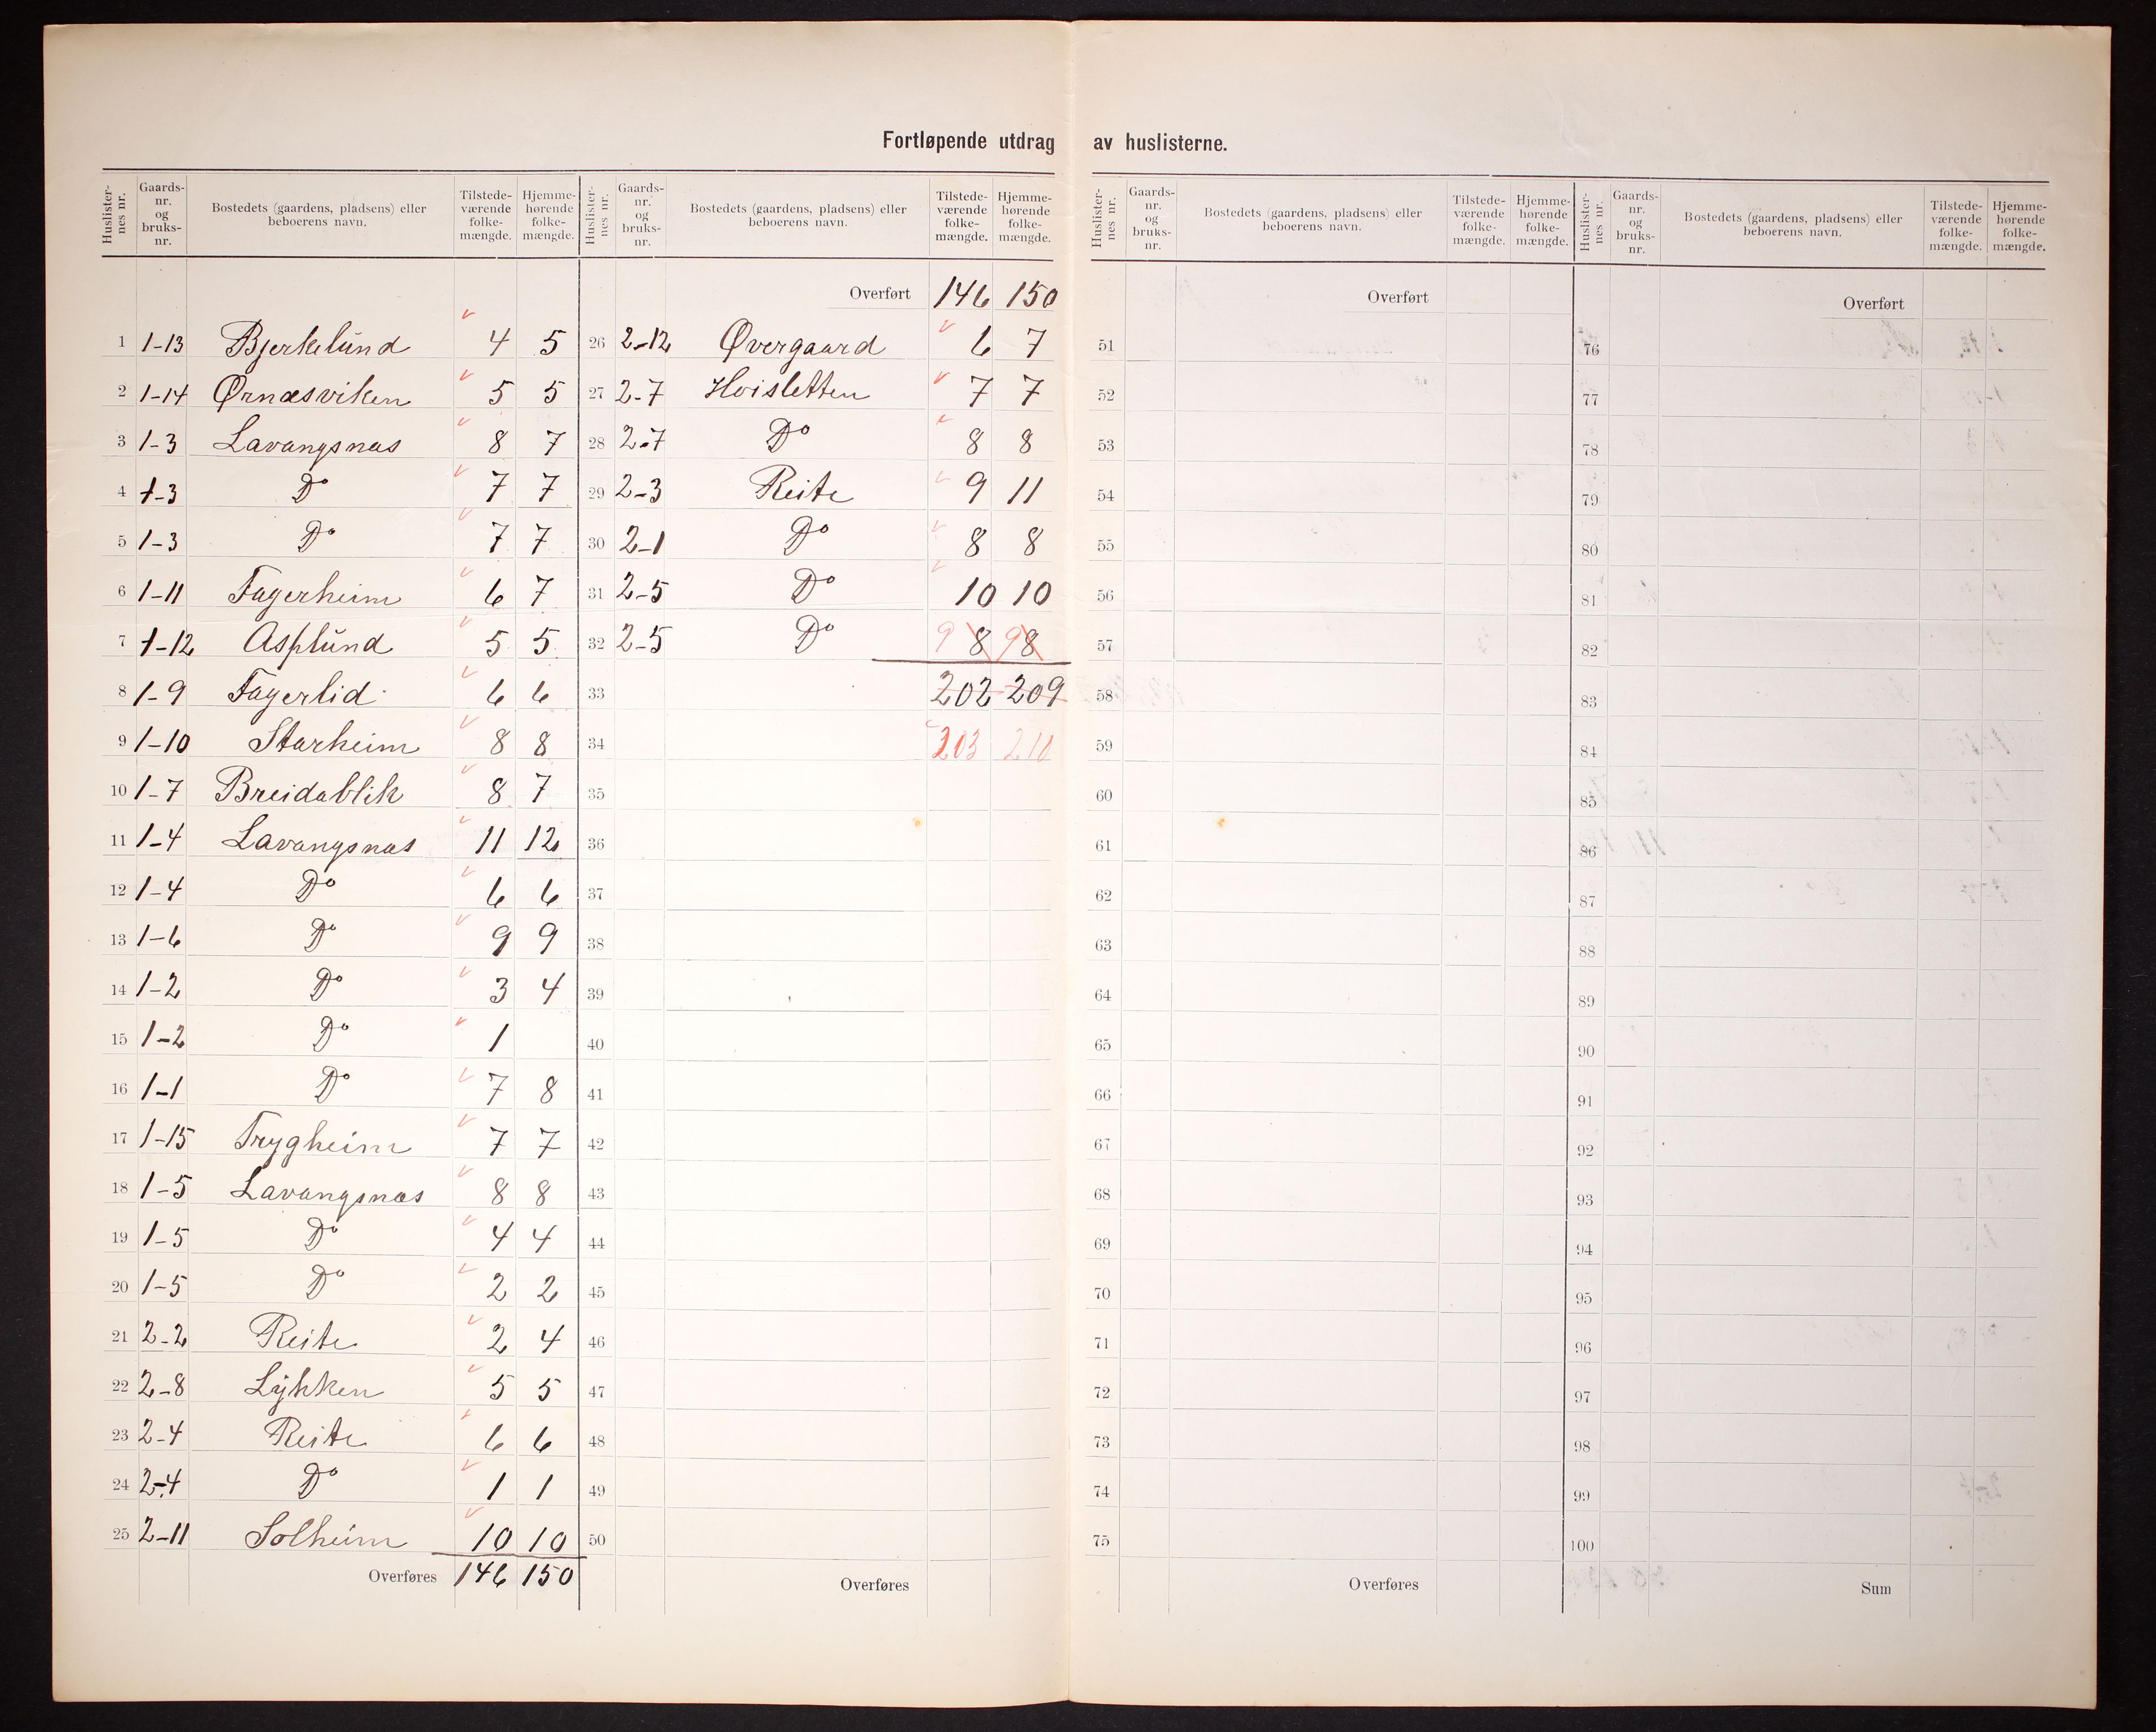 Fortløpende utdrag av huslisterne.
Huslisternes nr. Gaards-nr. og bruks-nr. Bostedets (gaardens, pladsens) eller beboerens navn. Tilstedeværende folkemængde. Hjemmehørende folkemængde.
1 1-13 Bjerkelund 4 5
2 1-14 Ørnæsviken 5 5
3 1-3 Lavangsnæs 8 7
4 1-3 Do 7 7
5 1-3 Do 7 7
6 1-11 Fagerheim 6 7
7 1-12 Asplund 5 5
8 1-9 Fagerlid 6 6
9 1-10 Starheim 8 8
10 1-7 Breidablik 8 7
11 1-4 Lavangsnæs 11 12
12 1-4 Do 6 6
13 1-6 Do 9 9
14 1-2 Do 3 4
15 1-2 Do 1
16 1-1 Do 7 8
17 1-15 Trygheim 7 7
18 1-5 Lavangsnæs 8 8
19 1-5 Do 4 4
20 1-5 Do 2 2
21 2-2 Reite 2 4
22 2-8 Lykken 5 5
23 2-4 Reite 6 6
24 2-4 Do 1 1
25 2-11 Solheim 10 10
Overføres 146 150
Huslisternes nr. Gaards-nr. og bruks-nr. Bostedets (gaardens, pladsens) eller beboerens navn. Tilstedeværende folkemængde. Hjemmehørende folkemængde.
Overført 146 150
26 2-12 Øvergaard 6 7
27 2-7 Hoisletten 7 7
28 2-7 Do 8 8
29 2-3 Reite 9 11
30 2-1 Do 8 8
31 2-5 Do 10 10
32 2-5 Do 9 8 9 8
33 202 209
34 203 210
35
36
37
38
39
40
41
42
43
44
45
46
47
48
49
50
Overføres
Huslisternes nr. Gaards-nr. og bruks-nr. Bostedets (gaardens, pladsens) eller beboerens navn. Tilstedeværende folkemængde. Hjemmehørende folkemængde.
Overført
51
52
53
54
55
56
57
58
59
60
61
62
63
64
65
66
67
68
69
70
71
72
73
74
75
Overføres
Huslisternes nr. Gaards-nr. og bruks-nr. Bostedets (gaardens, pladsens) eller beboerens navn. Tilstedeværende folkemængde. Hjemmehørende folkemængde.
Overført
76
77
78
79
80
81
82
83
84
85
86
87
88
89
90
91
92
93
94
95
96
97
98
99
100
Sum